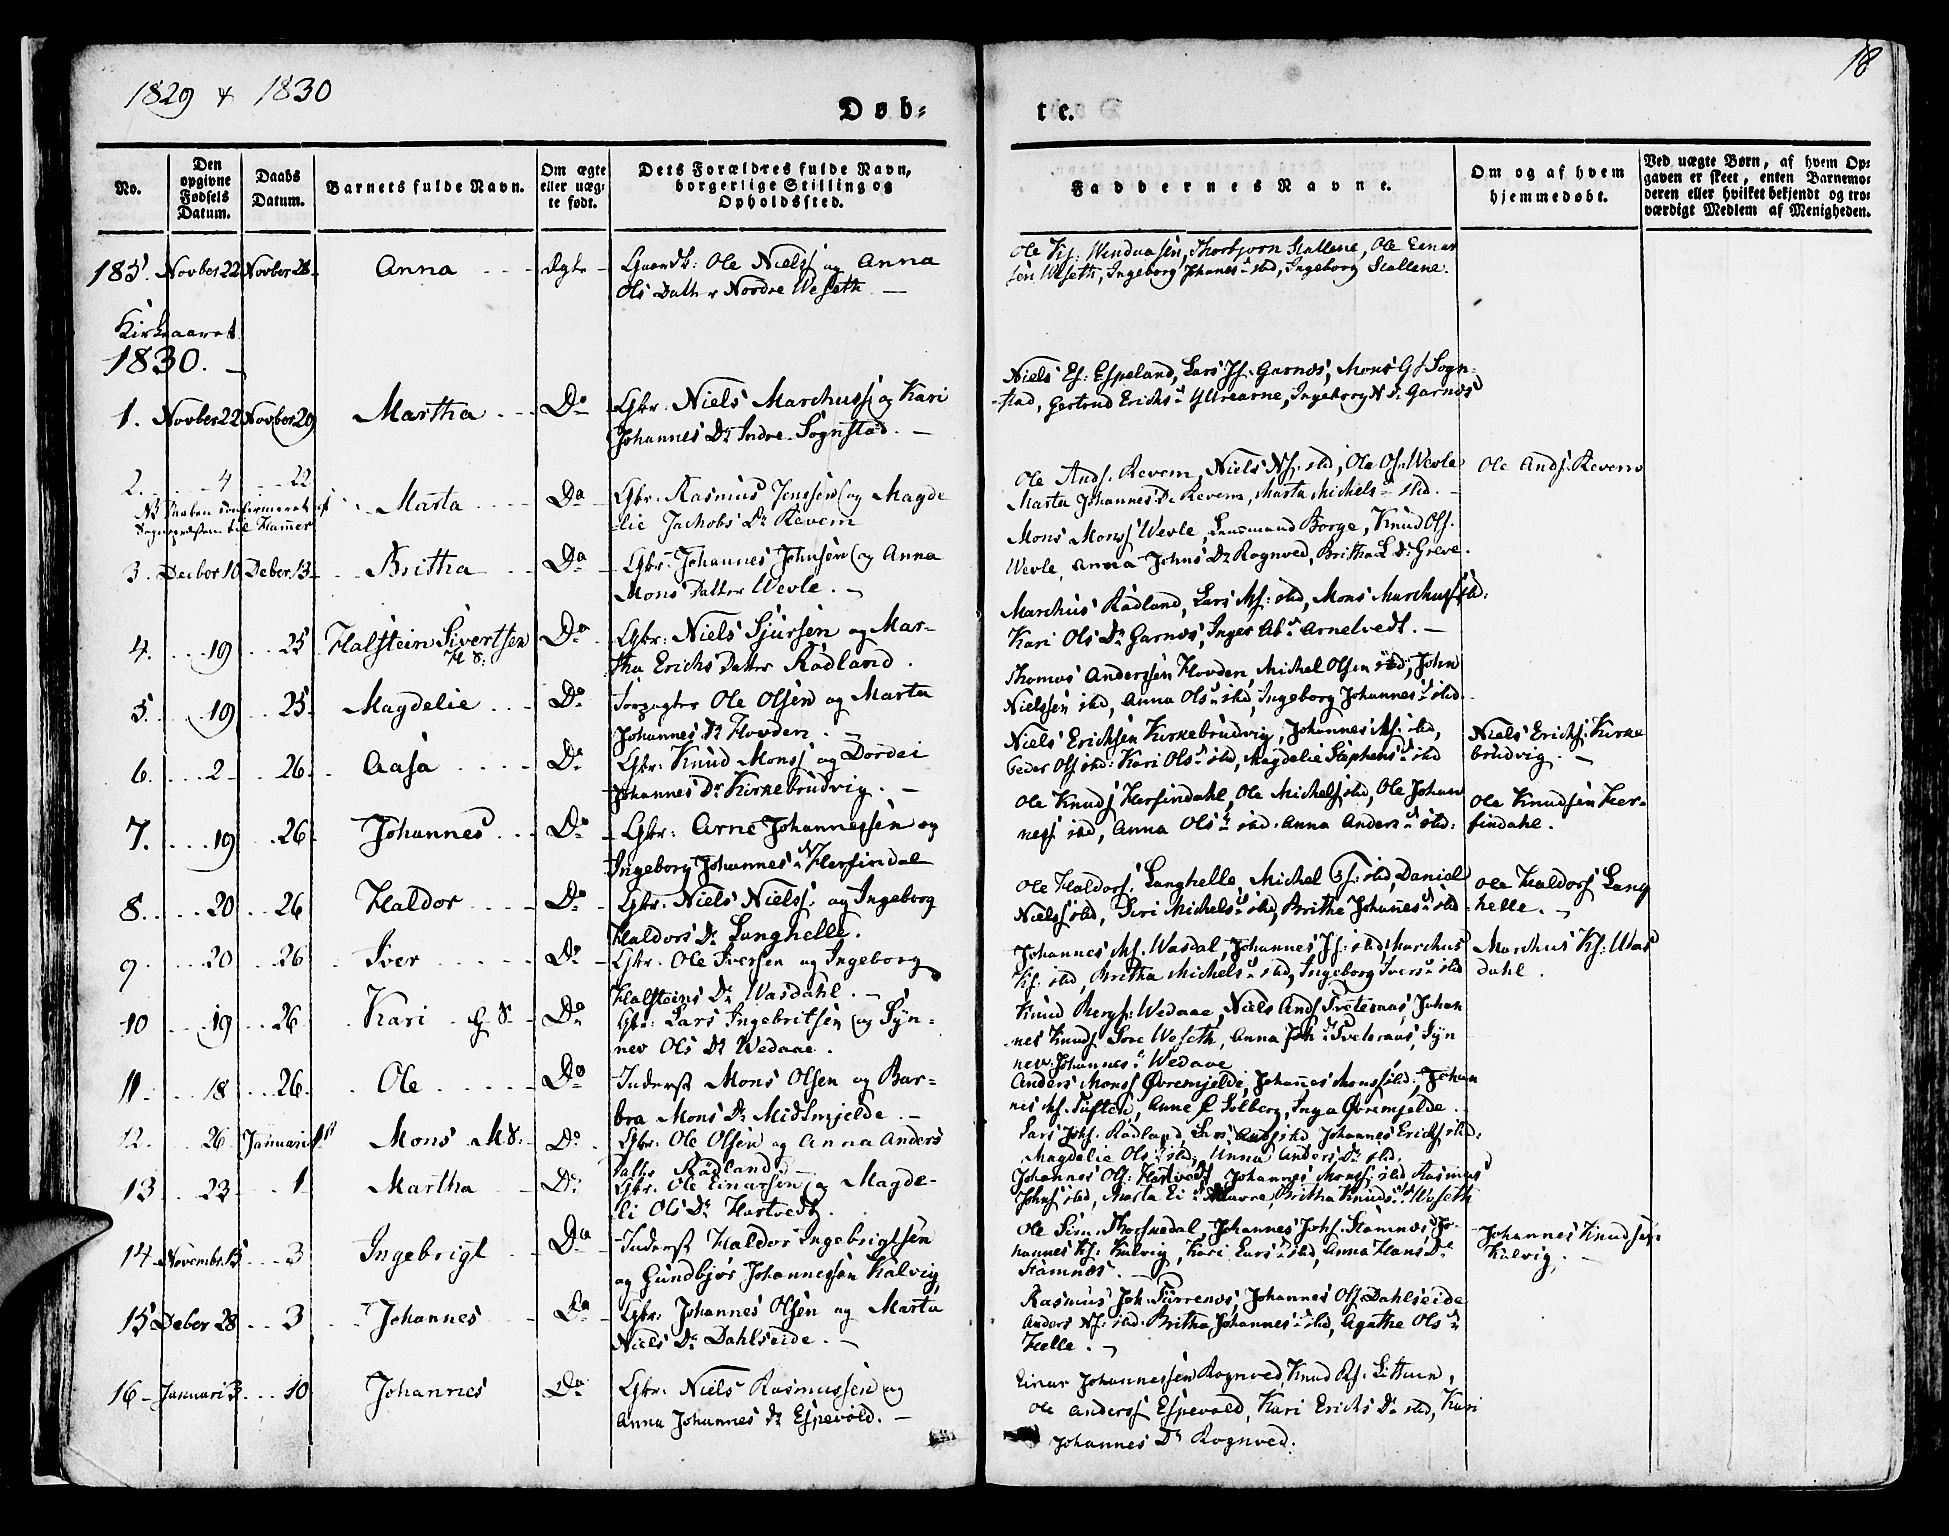 18
1829 & 1830
Døb-
te.
No.
Den opgivne Fødsels Datum.
Daabs Datum.
Barnets fulde Navn.
Om ægte eller uægte født.
Dets Forældres fulde Navn, borgerlige Stilling og Opholdssted.
Faddernes Navne.
Om og af hvem hjemmedøbt.
Ved uægte Børn, af hvem Opgaven er skeet, enten Barnemoderen eller hvilket bekjendt og troværdigt Medlem af Menigheden.
185. Novber 22 Novber 28 Anna Ægte Gaardb: Ole Nielss og Anna
Ols Datter Nordre Weseth
Thorbjorn Stallene, Ole Einar
sen Weseth, Ingeborg Johanes Dr ibd, Ingeborg Stallene.
Kirkeaaret
1830.
1. Novber 22 Novber 29 Martha Do Gbr: Niels Marchuss og Kari
Johannes Dr Indre Sognstad.
Niels Es: Espeland, Lars Js: Garnæs, Mons Gs Sogn-
stad, Gertrud Erichs Dr Ytrearne, Ingeborg N Dr Garnæs
2. 4 22 Marta Do Gbr. Rasmus Jenssen og Magde
lie Jachobs Dr Revem
Ole Ands. Revem, Niels Ns: ibd, Ole Os: Wevle
Marta Johannes Dr Revem, Marta Michels Dr ibd.
Ole Ands: Revem
3. Decber 10 Deber 13 Britha Do Gbr. Johannes Johnsen og Anna
Mons Datter Wevle.
Mons Monss Wevle, Borge, Knud Ols.
Wevle, Anna Johns Dr Rognved, Britha L Dr Greve.
4. 19 25 Halstein Sivertsen Do Gbr: Niels Sjursen og Mar-
tha Erichs Datter Rødland.
Marchus Rødland, Lars Ms: ibd, Mons Marchuss ibd:
Kari Ols Dr Garnæs, Inger Arnetvedt.
5. 19 25 Magdelie Do Ole Olsen og Marta
Johannes Dr Hovden.
Thomas Anderssen Hovden, Michel Olsen ibd, John
Nielssen ibd, Anna Ols Dr ibd, Ingeborg Johannes Dr ibd.
6. 2 26 Aasa Do Gbr: Knud Monss og Dordei
Johannes Dr Kirkebrudvig.
Niels Erichsen Kirkebrudvig, Johannes Ms: ibd,
Peder Ols ibd: Kari Ols Dr ibd, Magdelie Stephens Dr ibd
Niels Erichs. Kirke
brudvig.
7. 19 26 Johannes Do Gbr: Arne Johannessen og
Ingeborg Johannes Dr Hersindal
Ole Knuds Hersindahl, Ole Michels ibd, Ole Johan
ness ibd, Anna Ols Dr ibd. Anna Anders Dr ibd.
Ole Knudsen Her-
sindahl.
8. 20 26 Haldor Do Gbr. Niels Nielss: og Ingeborg
Haldors Dr Langhelle.
Ole Haldors. Langhelle, Michel ibd, Daniel
Nielss ibd, Siri Michels Dr ibd, Brithe Johannes Dr ibd
Ole Haldors Lang
helle.
9. 20 26 Iver Do Gbr. Ole Iversen og Ingeborg
Halsteins Dr Wasdahl.
Johannes Ms. Wasdal, Johannes Js: ibd, Marchus
Ks: ibd, Britha Michels Dr ibd, Ingeborg Ivers Dr ibd
Marchus Ks: Was
dahl.
10 19 26 Kari Do Gbr: Lars Ingebritsen og Syn-
nev Ols Dr Wedaae.
Knud Bergs: Wedaae, Niels Ands Tveteraas, Johan
nes Knuds Sore Weseth, Anna Joh Dr Tveteraas, Syn
nev: Johannes Dr Wedaae
11 18 26 Ole Do Inderst Mons Olsen og Bar-
bra Mons Dr Midtmjelde.
Anders Monss Øvremjelde, Johannes Monss ibd, Johan
nes Ms. Tuften, Anne Solberg, Inga Øvremjelde.
12. 26 Januari 1st Mons Do Gbr: Ole Olsen og Anna Anders
Datter Rødland
Lars Johs. Rødland, Johannes Erichs ibd:
Magdelie Ols Dr ibd, Anna Anders Dr ibd.
13 23 1 Martha Do Gbr. Ole Einarsen og Magde-
li Ols Dr Hartvedt.
Johannes Ols: Hartvedt, Johannes Monss ibd Rasmus
Johns ibd, Marta Britha Knuds Dr Weseth
14 Novembr 15 3 Ingebrigt Do Inderst Haldor Ingebrigtsen
og Gundbjør Johannessen Kalvig
Ole Sim: Thorsnedal, Johannes Johs. Stamnæs, Jo-
hannes Ks: Kalvig, Kari Lars Dr ibd, Anna Hans Dr
Stamnæs.
Johannes Knudsen
Kalvig.
15 Deber 28 3 Johannes Do Gbr. Johannes Olsen og Marta
Niels Dr Dahlseide.
Rasmus Joh. Furrenæs, Johannes Ols Dahlseide
Anders Ns: ibd. Britha Johannes Dr ibd, Agathe Ols Dr
Helle.
16 Januari 3 10 Johannes Do Gbr. Niels Rasmussen og
Anna Johannes Dr Espevold.
Einar Johannessen Rognved, Knud Rs. Littun,
Ole Anderss Espevold, Kari Erichs Dr ibd, Kari
Johannes Dr Rognved.